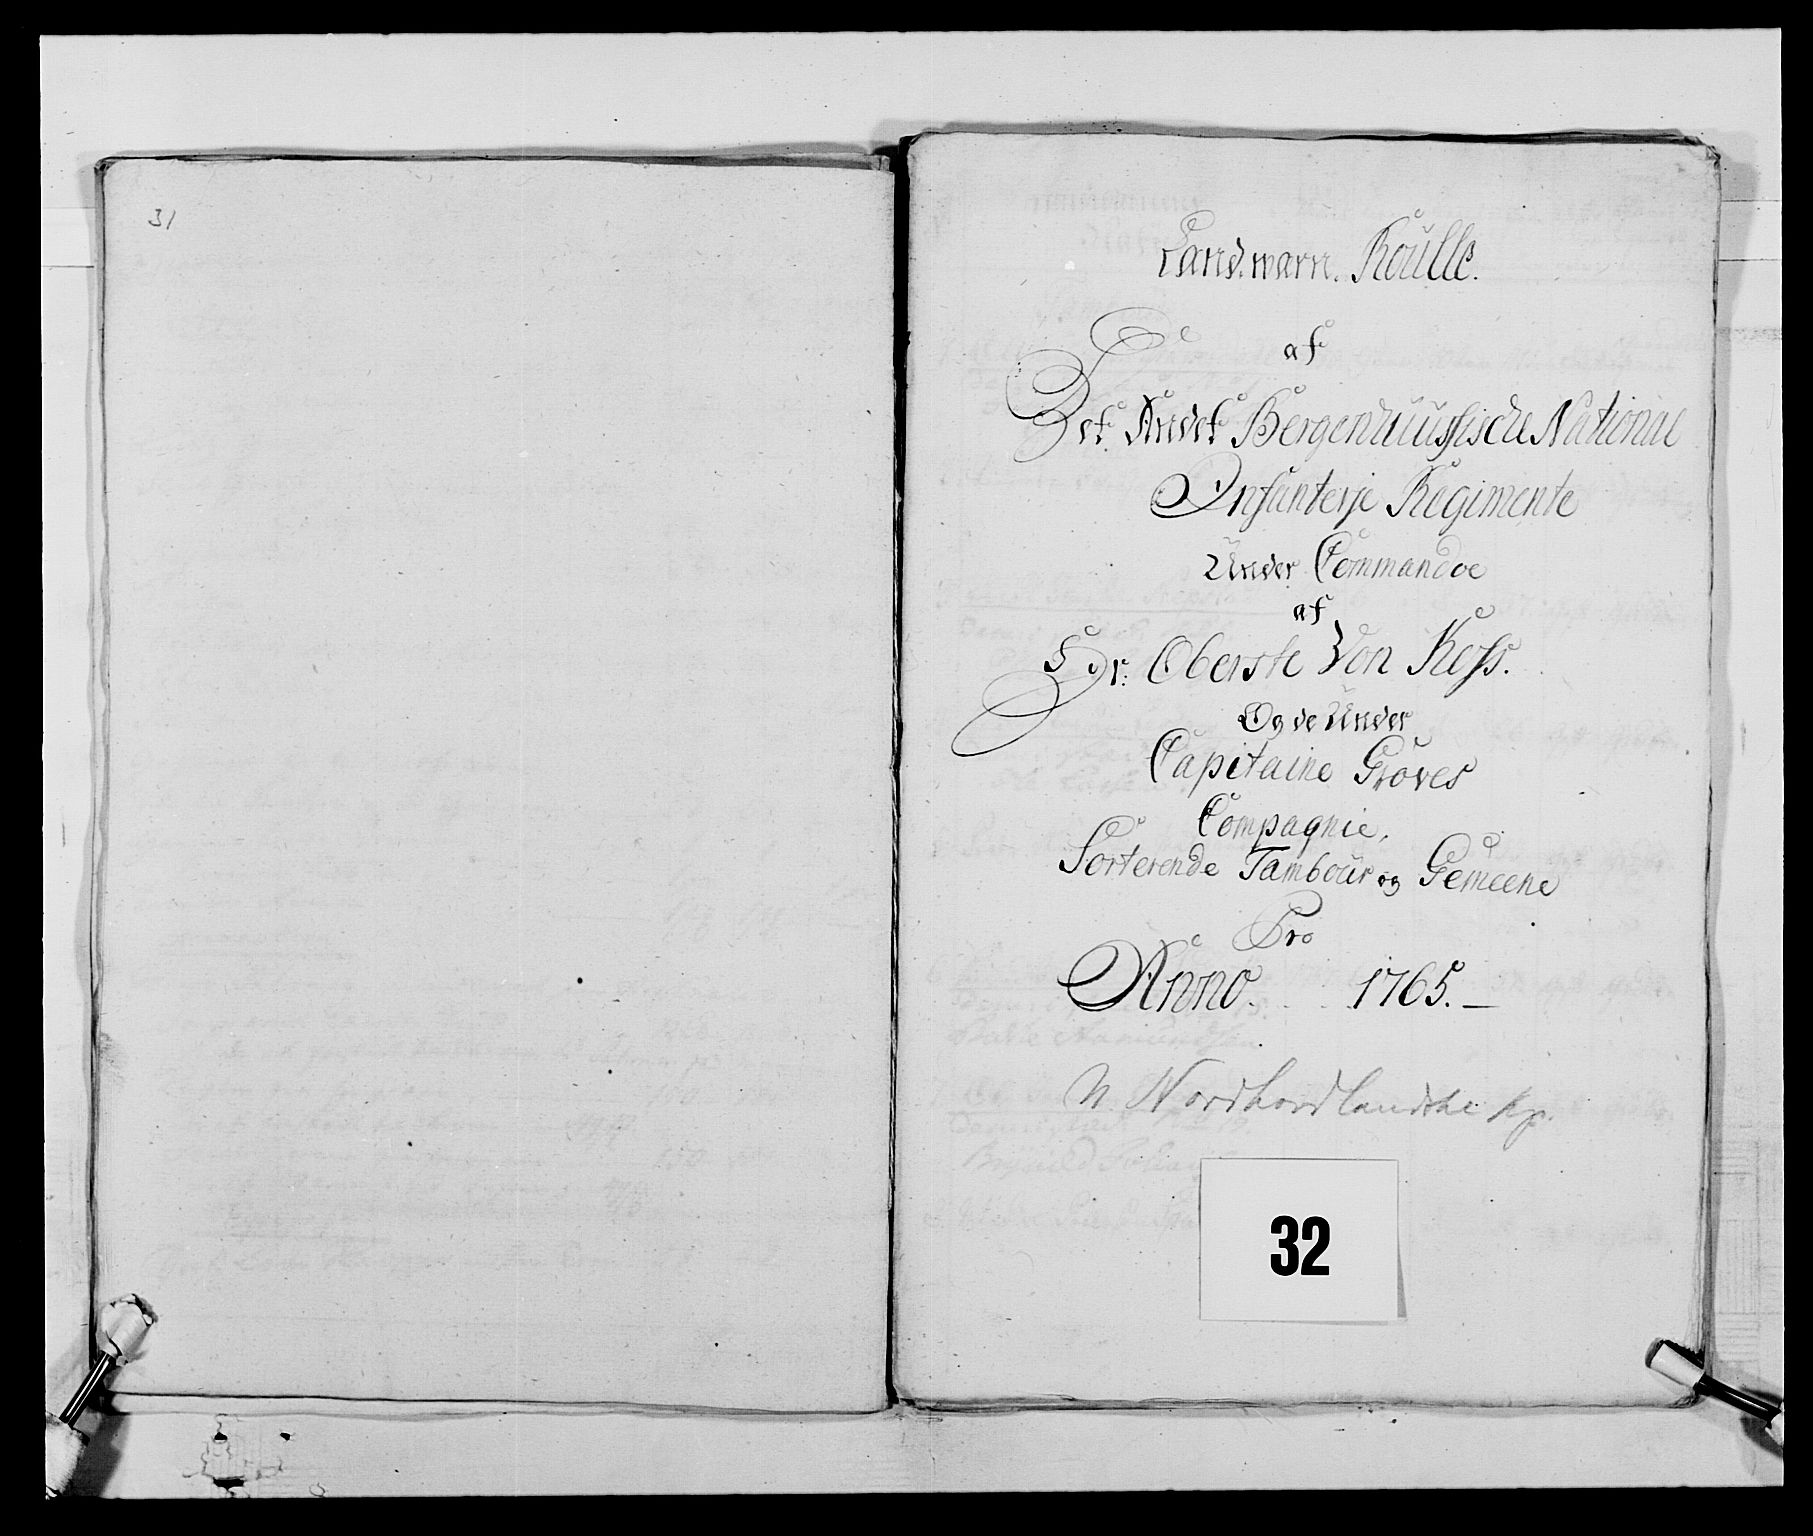 31
Land.marn. Roulle.
af
Det Andet Bergenhuusische National
Infanterje Regimente
Under Commandoe
af
Hr: Oberste Von Koss.
Og de Under
Capitaine Groves
Compagnie,
Sorterende Tambour og Gemeene
Pro
Anno 1765. —
N. Nordhordlandske Kp.
32